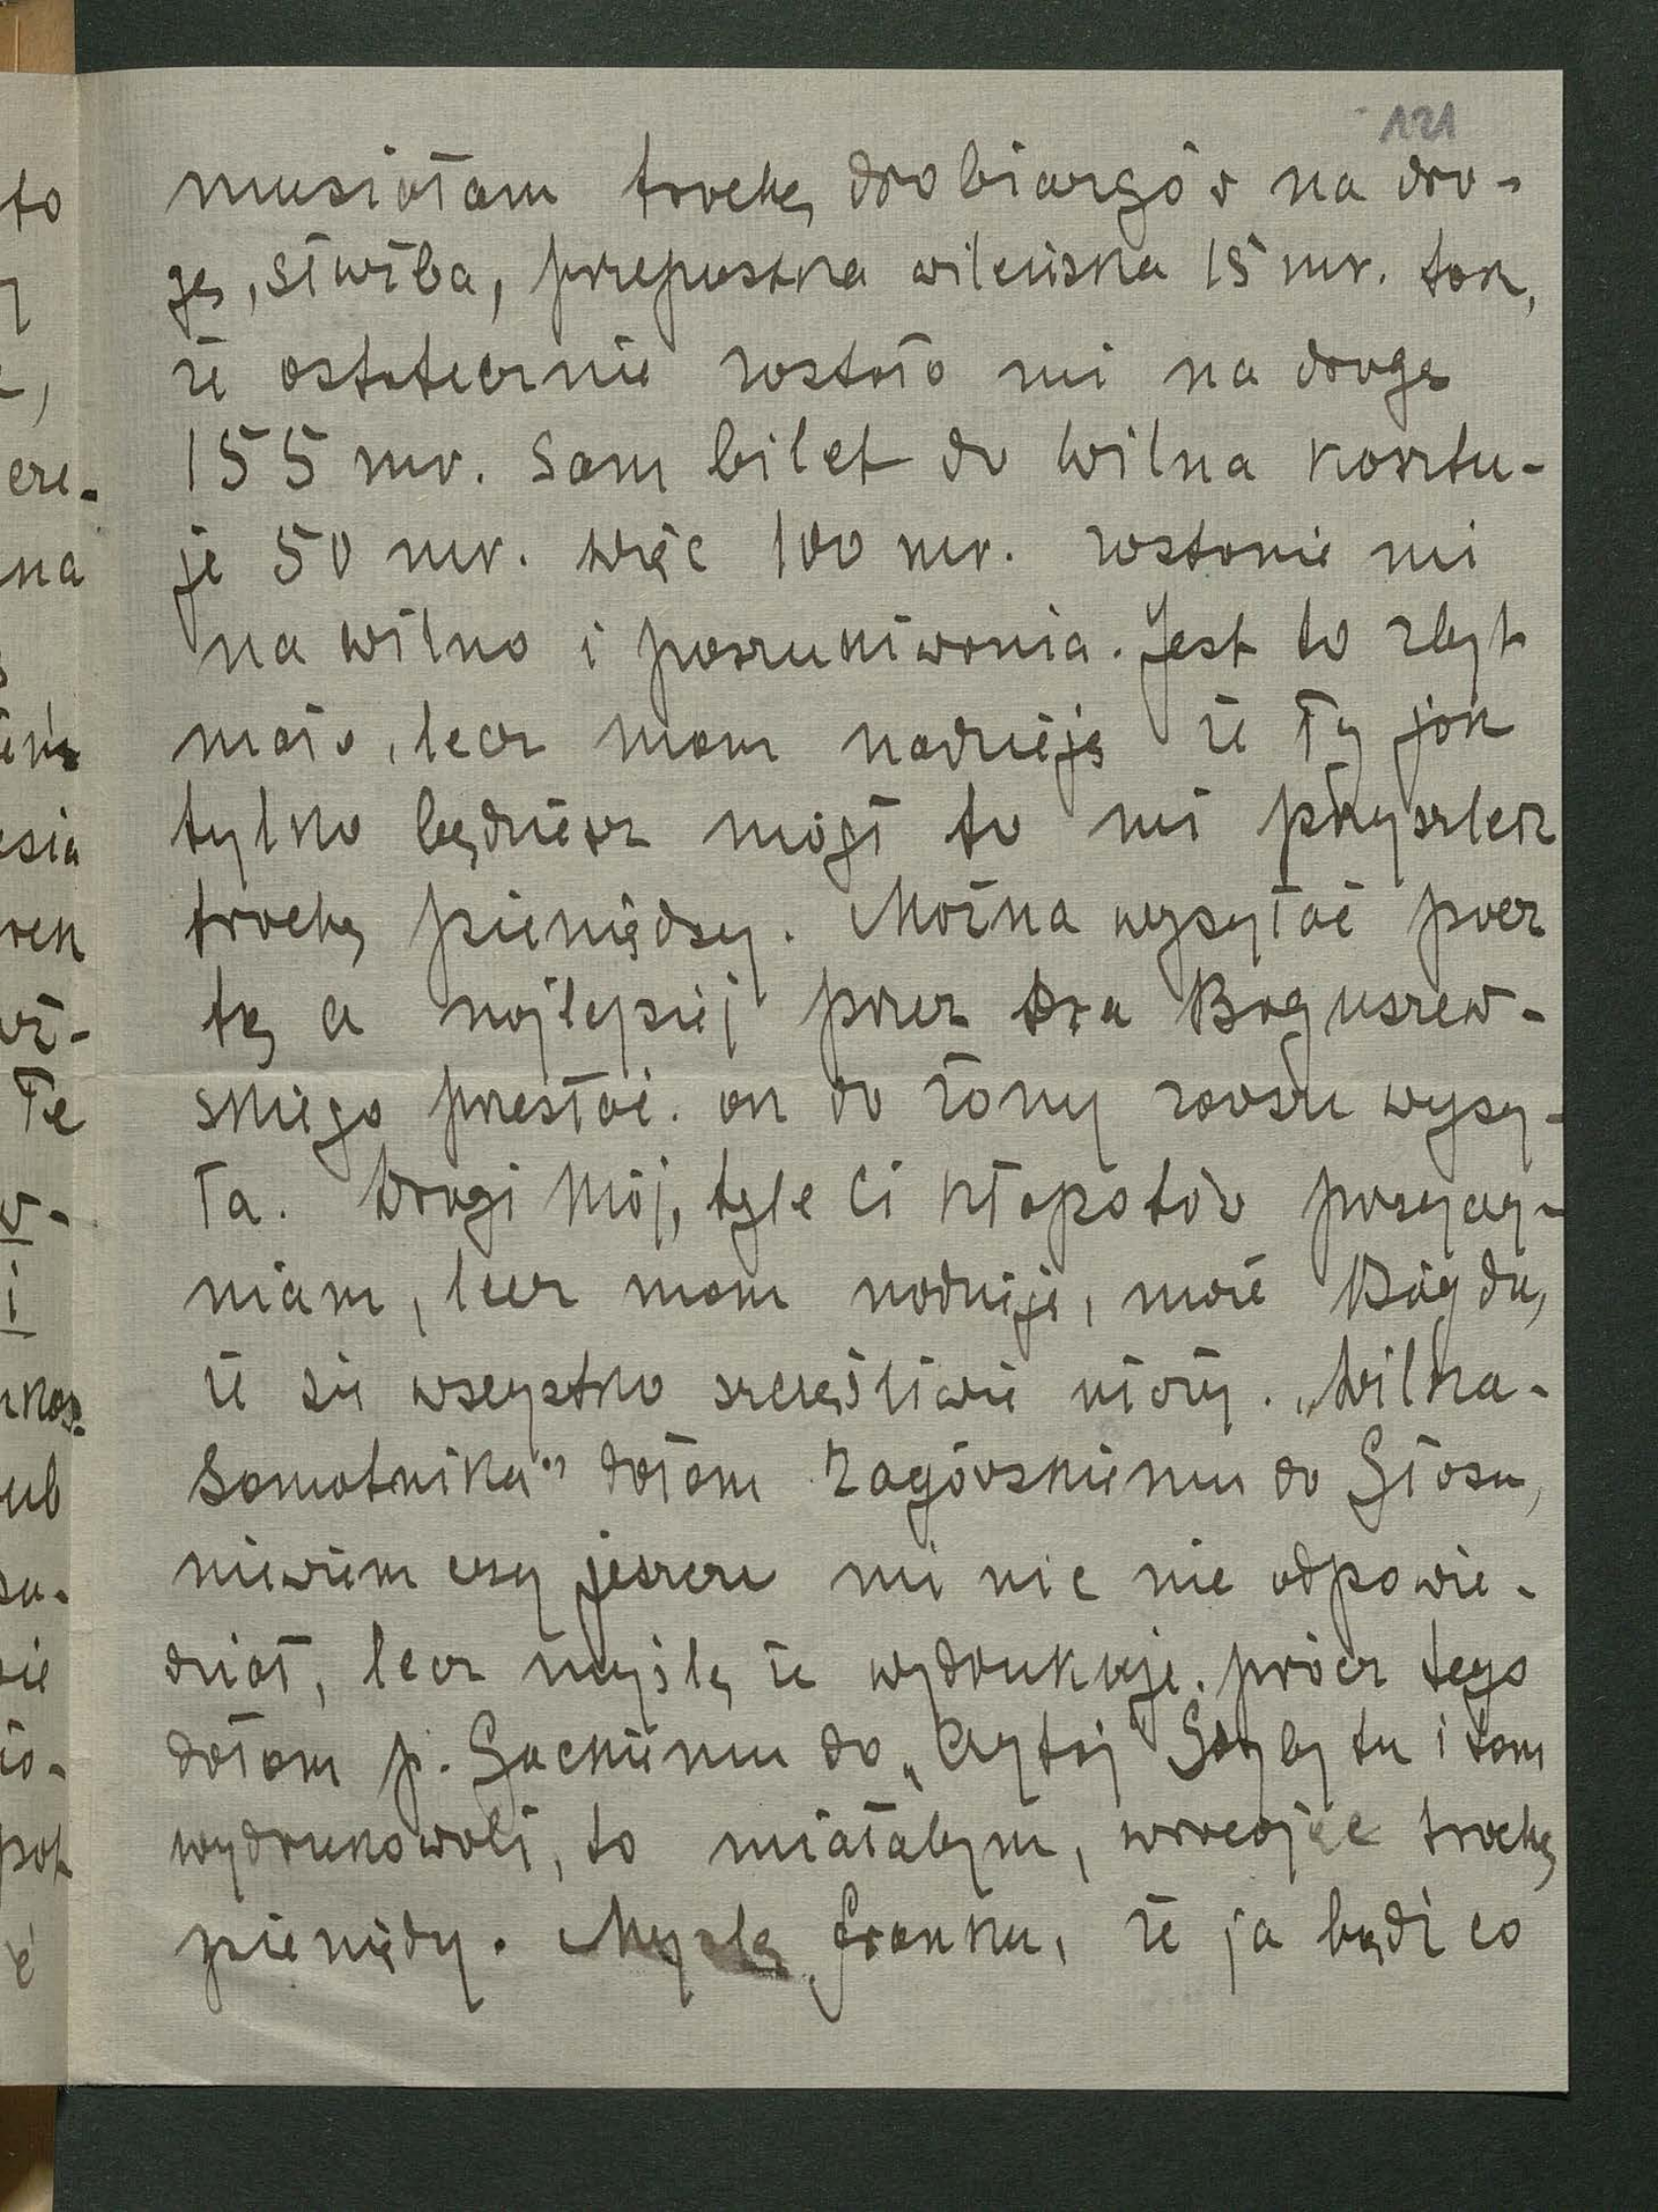 121
to musiałam trochę drobiazgów na dro-
gę, służba, przepustka wileńska 15 mr. tak,
że ostatecznie zostało mi na drogę
155 mr. Sam bilet do Wilna kosztu-
je 50 mr. więc 100 mr. zostanie mi
na Wilno i poszukiwania. Jest to zbyt
mało, lecz mam nadzieję że Ty jak
tylko będziesz mógł to mi przyszlesz
trochę pieniędzy. Można wysyłać pocz
tą a najlepiej przez Dra Boguszew-
skiego przesłać. on do żony zawsze wysy-
ła. Drogi Mój, tyle Ci kłopotów przyczy-
niam, lecz mam nadzieję, może Bóg da,
że się wszystko szczęśliwie ułoży. „Wilka-
Samotnika" dałam Zagórskiemu do Głosu,
niewiem czy jeszcze mi nic nie odpowie-
dział, lecz myślę że wydrukuje. prócz tego
dałam p. Gackiemu do „Czytaj" Gdyby tu i tam
wydrukowali, to miałabym, wracając trochę
pieniędzy. Myślę Franku, że ja bądź co